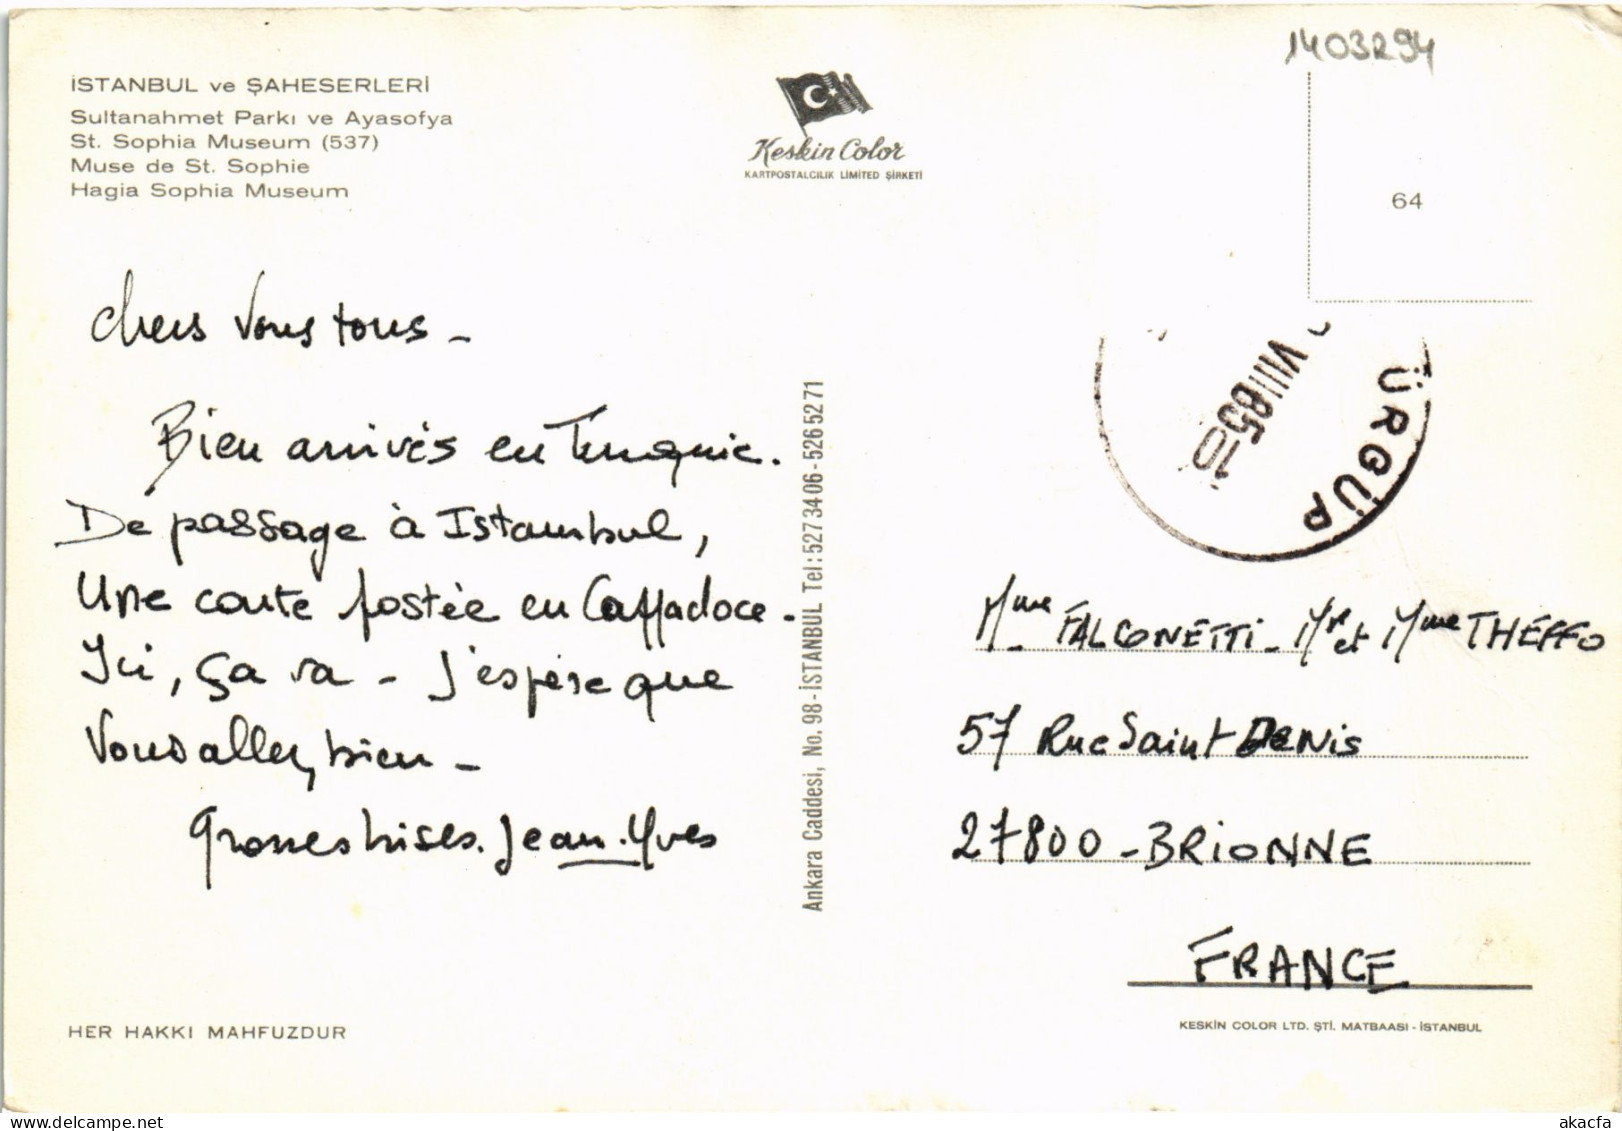 1403294
İSTANBUL ve ŞAHESERLERİ
Sultanahmet Parkı ve Ayasofya
St. Sophia Museum (537)
Muse de St. Sophie
Hagia Sophia Museum
Keskin Color
KARTPOSTALCILIK LIMITED ŞİRKETİ
64
ÜRGÜP
VIII 85-10
Chers Vous tous -
Bien arrivés en Turquie.
De passage à Istambul,
Une carte postée en Cappadoce.
Ici, ça va - J'espère que
Vous allez bien -
Grosses bises. Jean-Yves
Ankara Caddesi, No. 98-İSTANBUL Tel: 527 34 06-526 52 71
Mme FALCONETTI - Mr et Mme THEFFO
57 Rue Saint Denis
27800 - BRIONNE
FRANCE
HER HAKKI MAHFUZDUR
KESKİN COLOR LTD. ŞTİ. MATBAASI - İSTANBUL
delcampe.net
akacfa